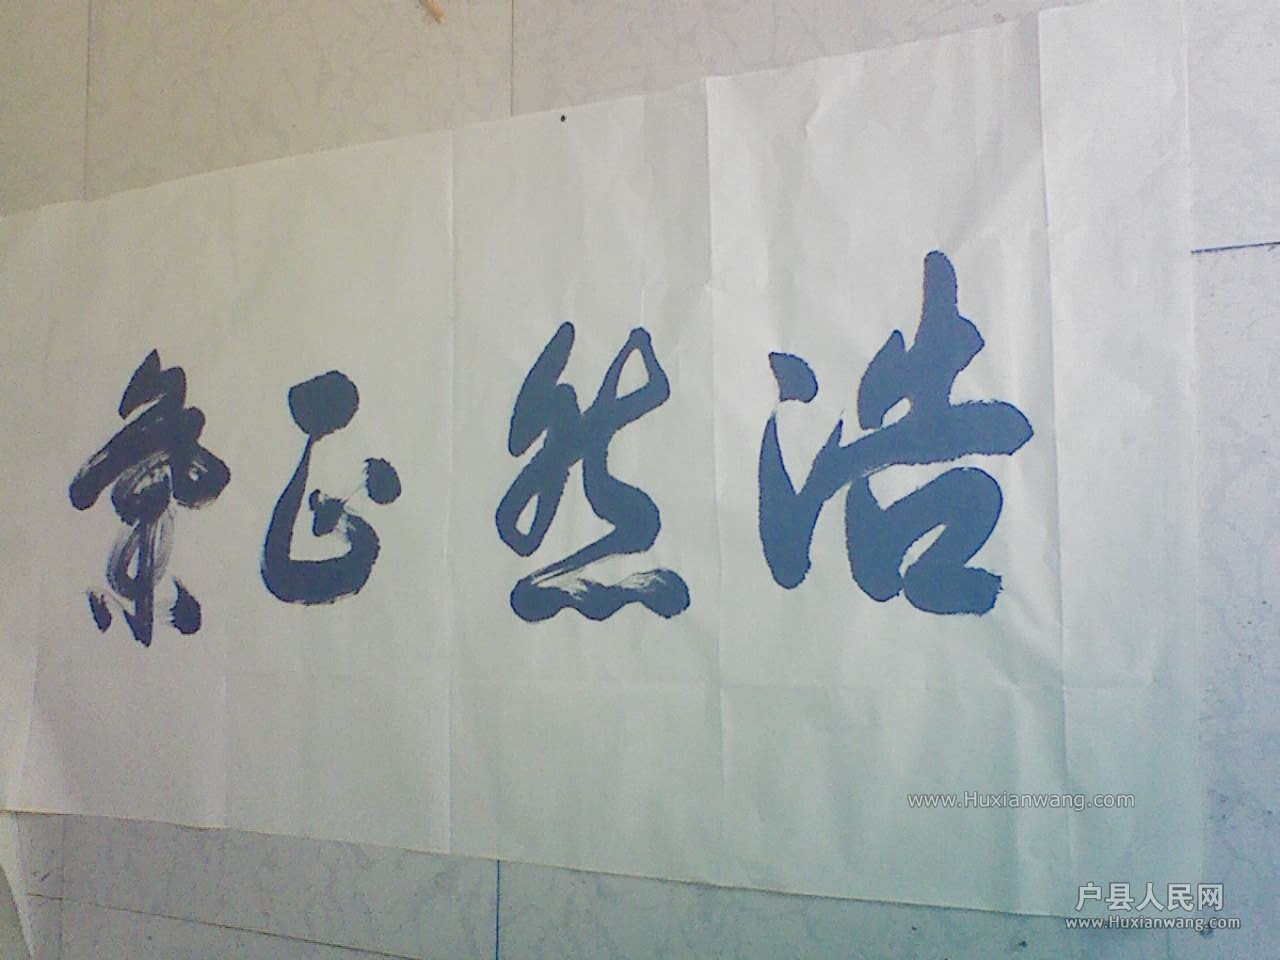 浩然正氣
www.Huxianwang.com
户县人民网
www.Huxianwang.com